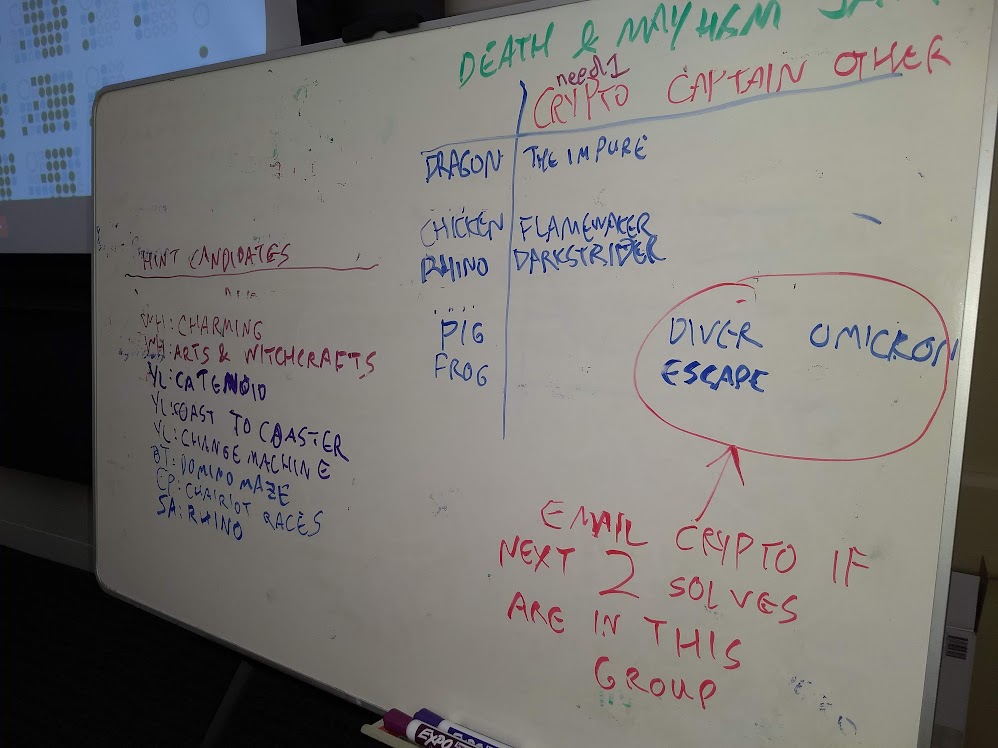 DEATH & MAYHEM
need 1
CRYPTO CAPTAIN OTHER
DRAGON THE IMPURE
CHICKEN FLAMEWAKER
RHINO DARKSTRIDER
PIG
FROG
HINT CANDIDATES
MH: CHARMING
MH: ARTS & WITCHCRAFTS
YL: CATENOID
YL: COAST TO COASTER
YL: CHANGE MACHINE
BT: DOMINO MAZE
CP: CHAIRIOT RACES
SA: RHINO
DIVER OMICRON
ESCAPE
EMAIL CRYPTO IF
NEXT 2 SOLVES
ARE IN THIS
GROUP
EXPO